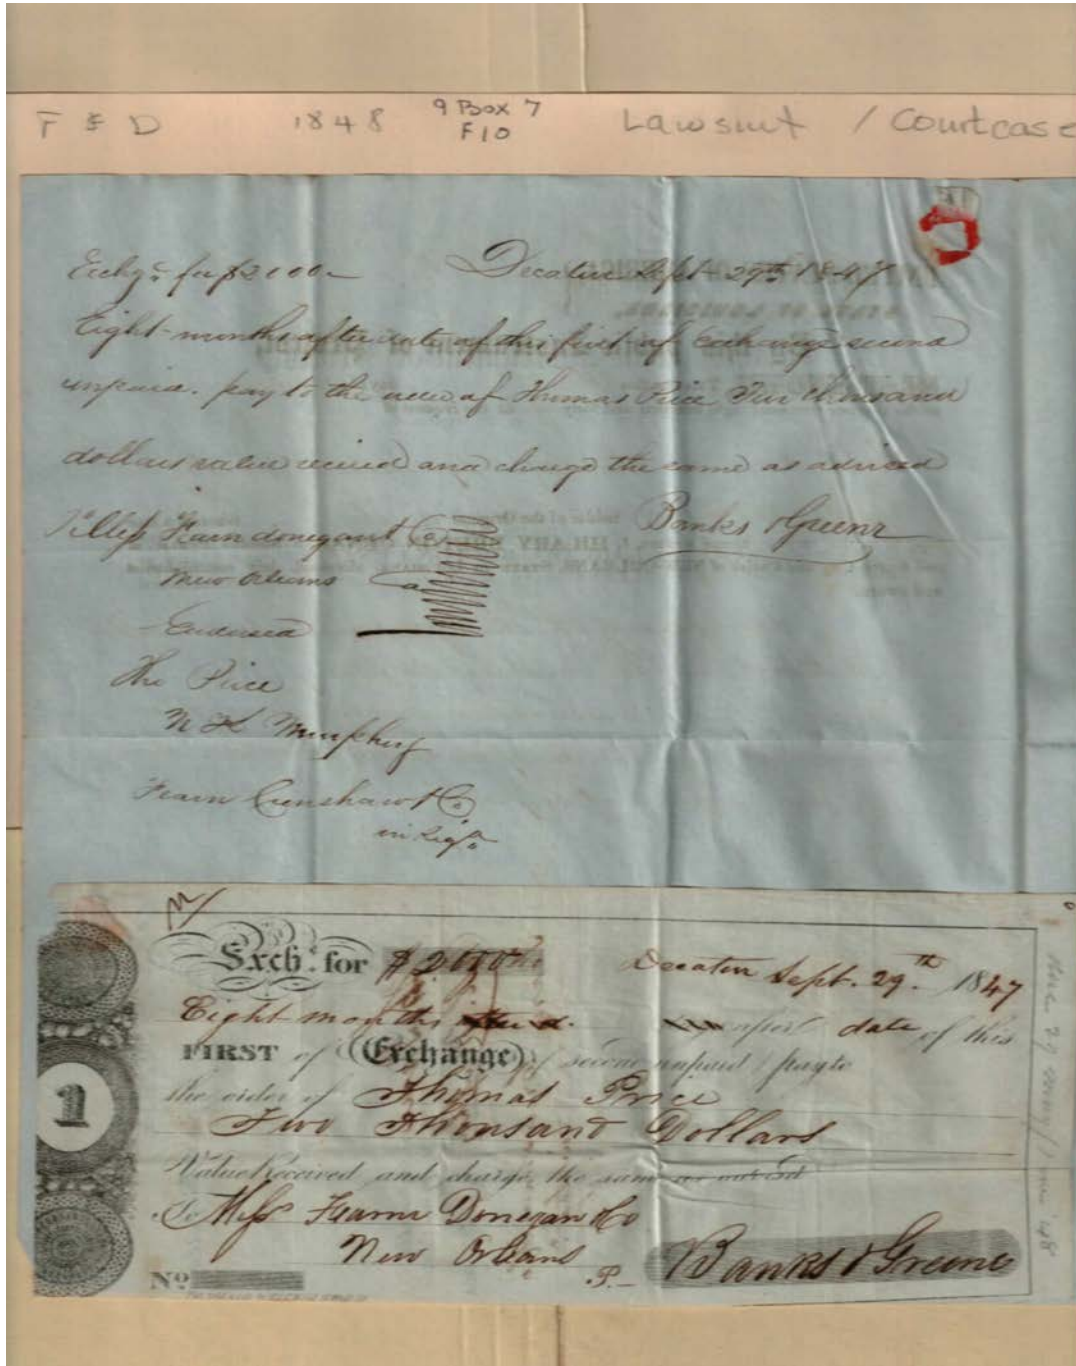 F & D 1848 9 Box 7 Lawsuit / Courtcase
F10
Exchg. for $2000 Decatur Sept 29th 1847
Eight months after date of this first of exchange second
unpaid. pay to the order of Thomas Price Two thousand
dollars value received and charge the same as advised
Mess Fearn donegan & Co Banks & Greene
New Orleans
Endorsed
Tho Price
Murphy
Fearn Crenshaw & Co
in Liqn
Exch. for $2000 Decatur Sept. 29th 1847
Eight months after date of this
FIRST of (Exchange) second unpaid pay to
the order of Thomas Price
Two Thousand Dollars
Value Received and charge the same as advised
To Mess Fearn Donegan & Co
New Orleans
P. Banks & Greene
No
1